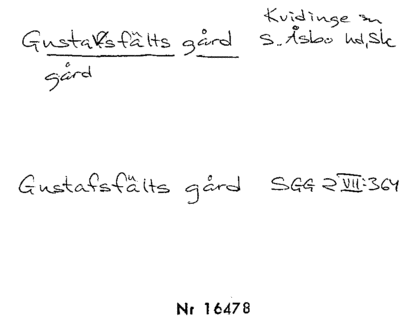 Gustavsfälts gård Kvidinge sn
gård S. Åsbo hd, Sk
Gustafsfälts gård SGG 2 VII:364
Nr 16478